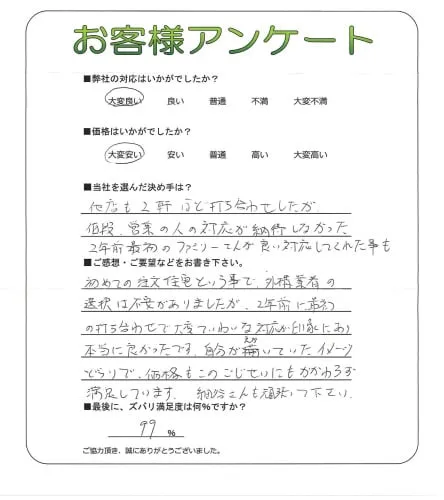 お客様アンケート
■弊社の対応はいかがでしたか？
大変良い 良い 普通 不満 大変不満
■価格はいかがでしたか？
大変安い 安い 普通 高い 大変高い
■当社を選んだ決め手は？
他店も2軒ほど打ち合わせしたが
価段、営業の人の対応が納得しなかった
2年前最初のファミリーさんが良い対応してくれた事も
■ご感想・ご要望などをお書き下さい。
初めての注文住宅という事で、外構業者の
選択は不安がありましたが、2年前に最初
の打ち合わせで大変ていねいな対応が印象にあり
本当に良かったです。自分が描いていたイメージ
どうりで、価格もこのごじせいにもかかわらず
満足しています。 細谷さんも頑張って下さい。
■最後に、ズバリ満足度は何%ですか？
99 %
ご協力頂き、誠にありがとうございました。